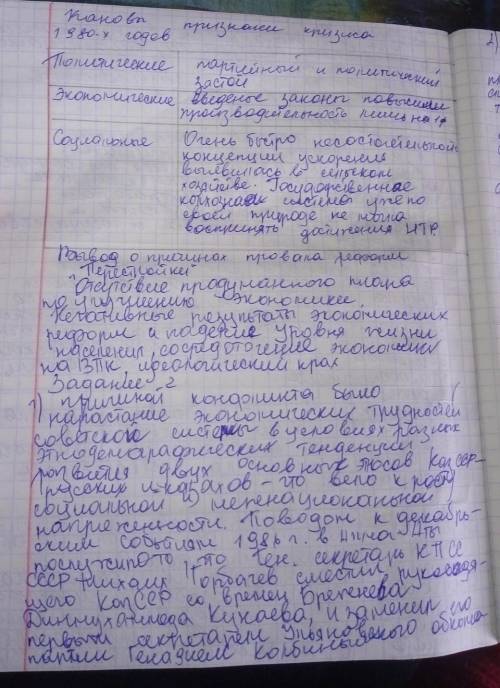 Каковы признаки кризиса
1980-х годов
Политические партийный и политический
застой
Экономические введеные законы повысили
производительность лишь на 1%
Социальные Очень быстро несостоятельность
концепции ускорения
выявилась в сельском
хозяйстве. Государственные
колхозная система уже по
своей природе не могла
воспринять достижения НТР.
Вывод о причинах провала реформ
"Перестройки"
Отсутствие продуманного плана
по улучшению экономики.
Негативные результаты экономических
реформ и падение уровня жизни
населения, сосредоточение экономики
на ВПК, идеологический крах
Задание 2
1) причиной конфликта было
нарастание экономических трудностей
советской системы в условиях разных
этнодемографических тенденций
развития двух основных этносов КазССР-
русских и казахов - что вело к росту
социальной и межнациональной
напряженности. Поводом к декабрь-
ским событиям 1986 г. в Алма-Аты
послужило то, что Ген. секретарь КПСС
СССР Михаил Горбачев сместил руководя-
щего КазССР со времен Брежнева
Динмухаммеда Кунаева, и заменил его
первым секретарем Ульяновского обкома
партии Генадием Колбиным
2)